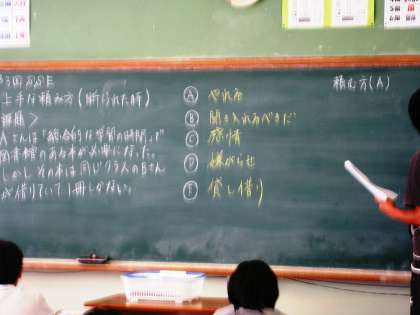 上手な頼み方(断られた時)
課題>
Aさんは"総合的な学習の時間"で
図書館のある本が必要になった。
しかしその本は同じクラスのBさん
が借りていて1冊しかない。
Ⓐ やれる
Ⓑ 聞き入れるべきだ
Ⓒ 感情
Ⓓ 嫌がらせ
Ⓔ 貸し借り
頼む方(A)